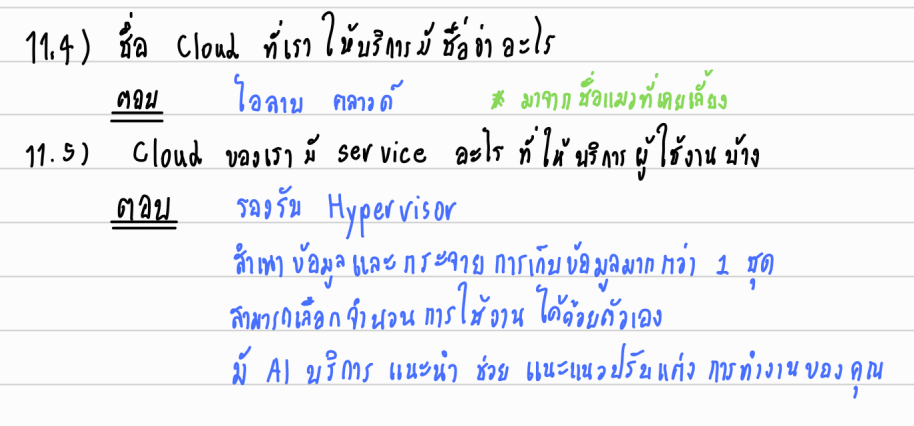 11.4) ชื่อ Cloud ที่เรา ให้บริการมี ชื่อว่า อะไร
ตอบ ไอลาบ คลาวด์ * มาจาก ชื่อแมวที่เคยเลี้ยง
11.5) Cloud ของเรา มี service อะไร ที่ ให้ บริการ ผู้ ใช้งาน บ้าง
ตอบ รองรับ Hypervisor
สำเนา ข้อมูล และ กระจาย การเก็บ ข้อมูลมาก กว่า 1 ชุด
สามารถเลือก จำนวน การ ใช้งาน ได้ด้วยตัวเอง
มี AI บริการ แนะนำ ช่วย แนะแนวปรับแต่ง การทำงาน ของ คุณ